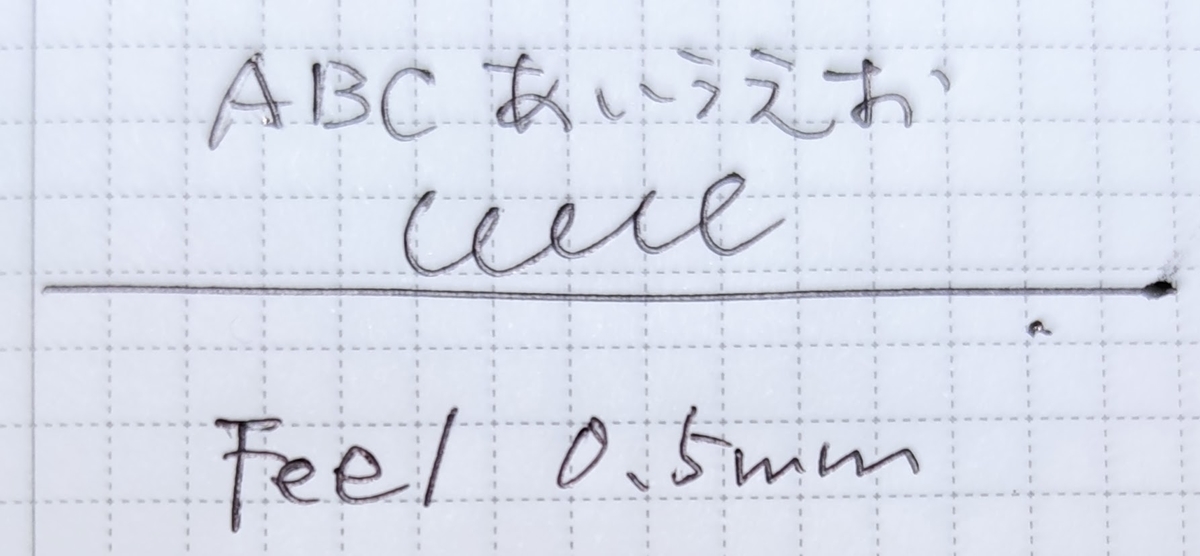 ABC あいうえお
Feel 0.5mm